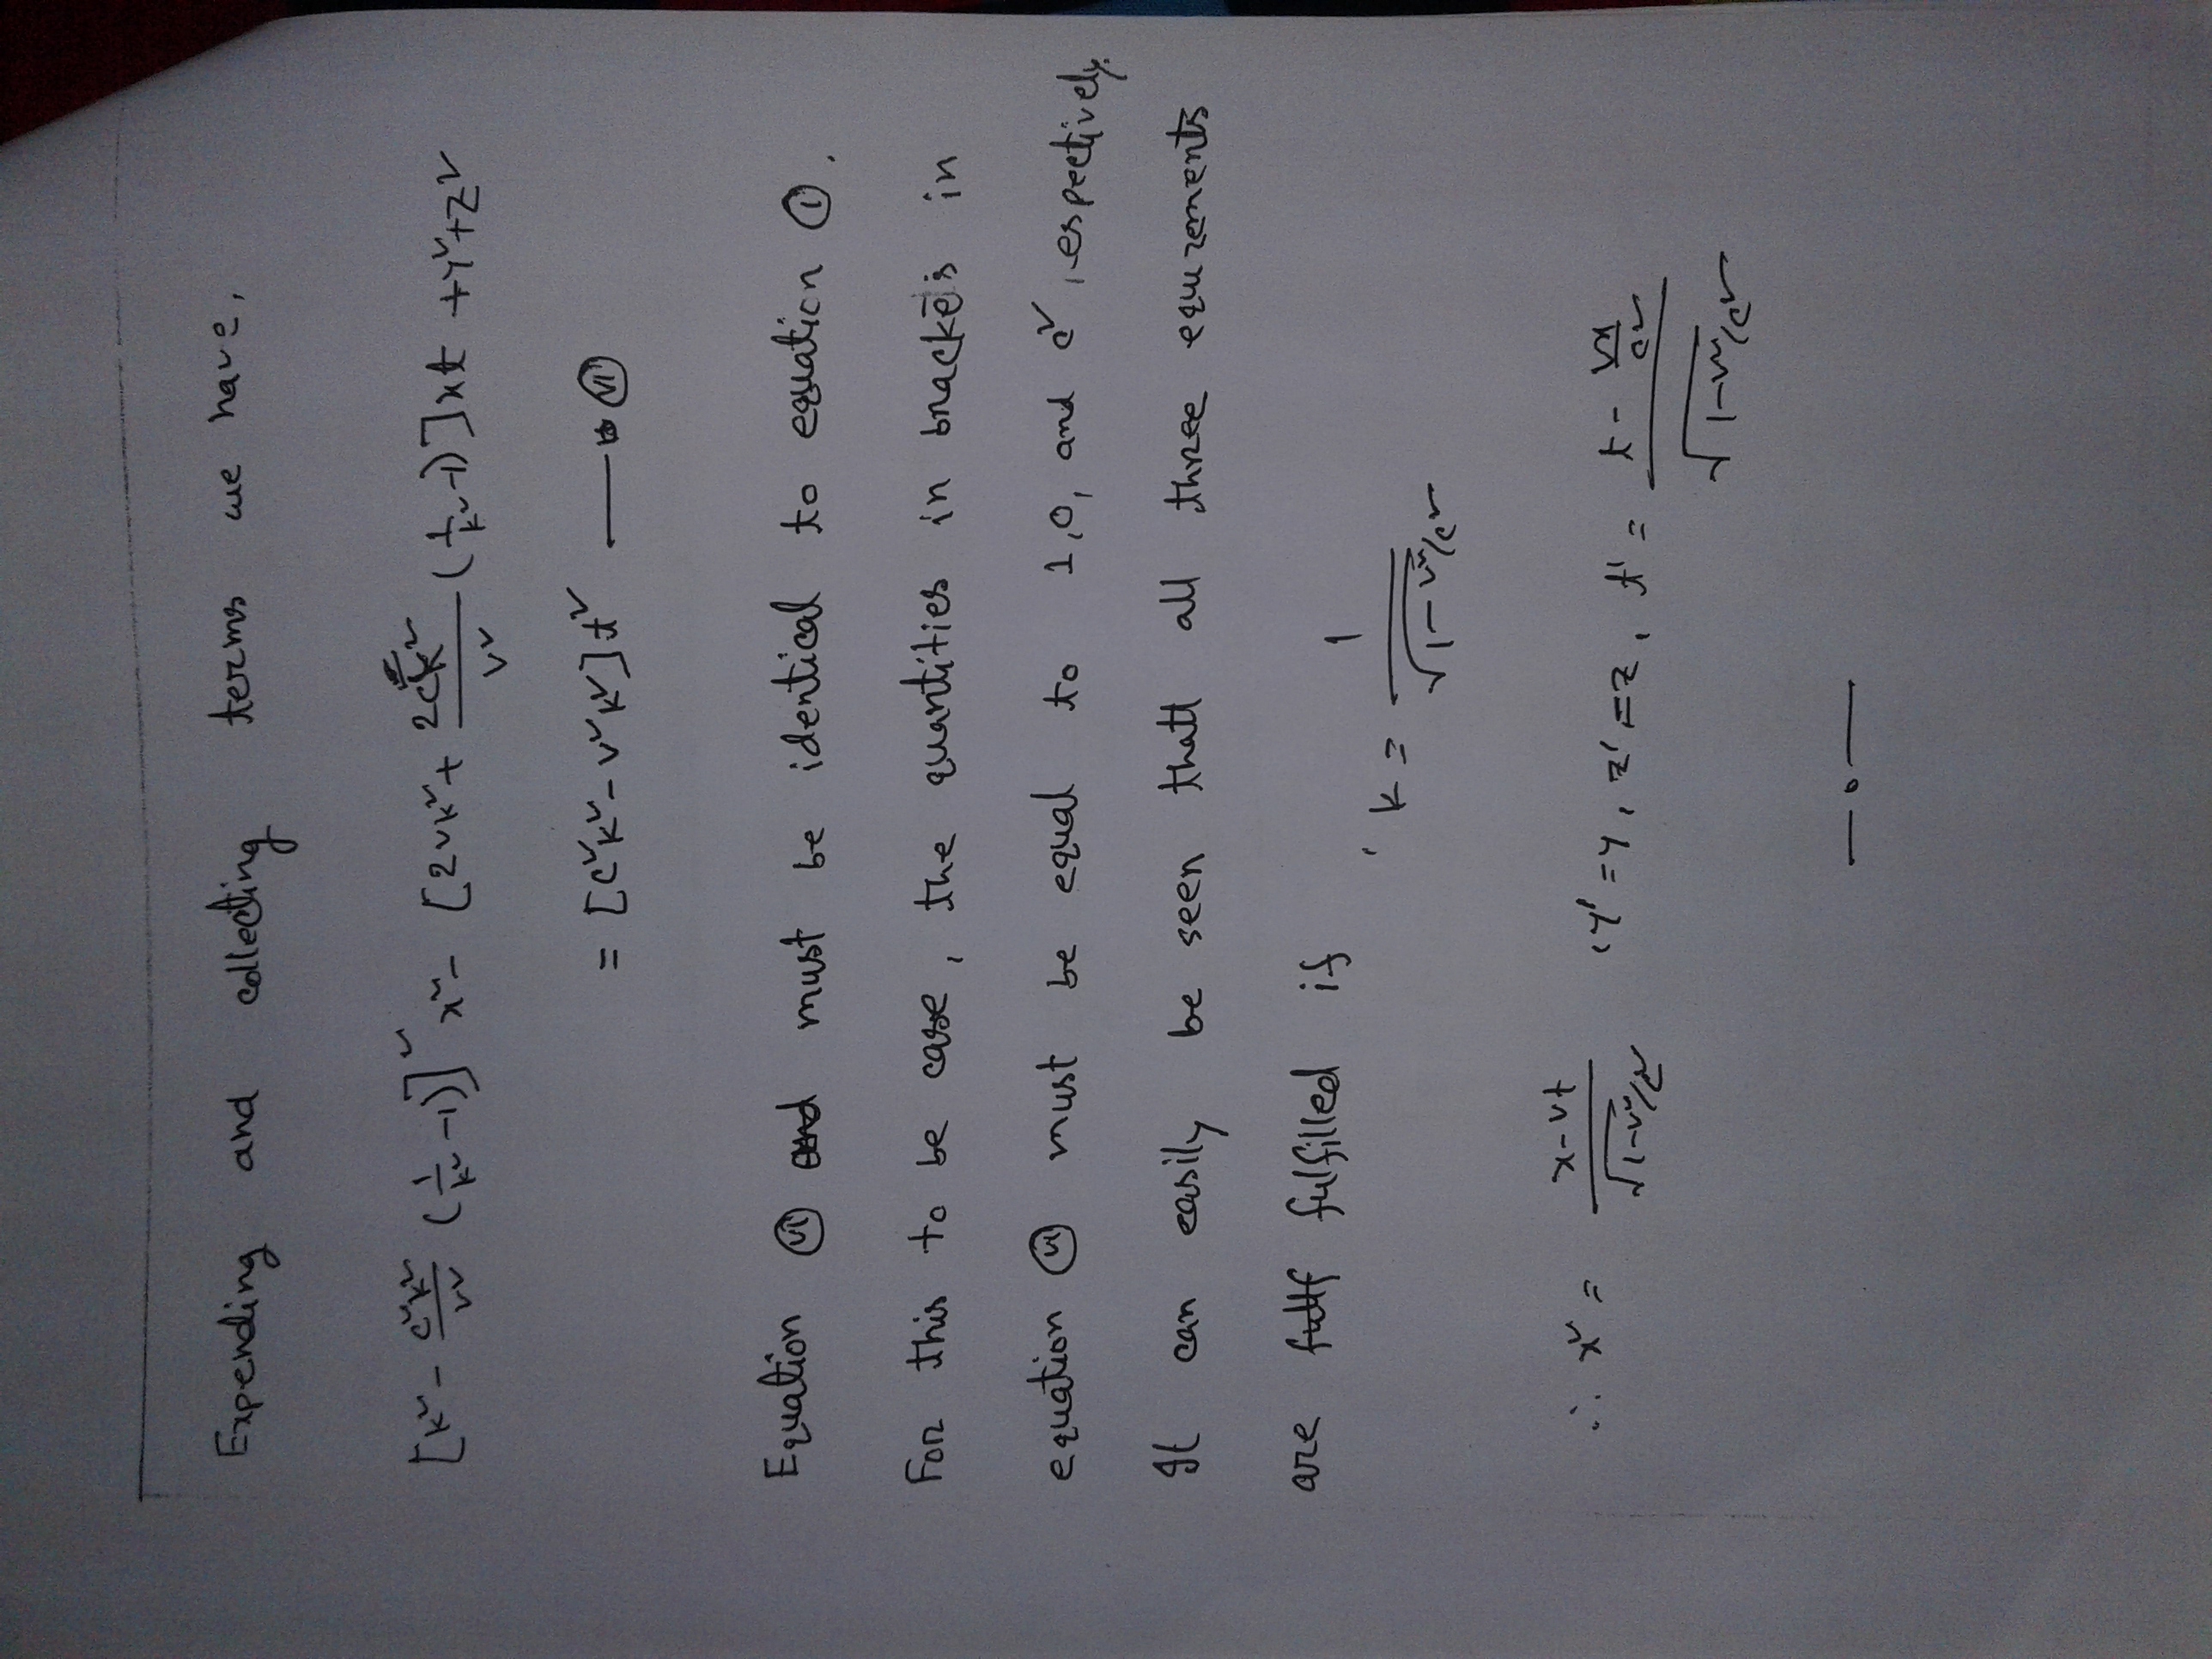 Expending and collecting terms we have,
[k² - c²k²/v² (1/k² -1)]² x² - [2vk² + 2ck²/v² (1/k² -1)]xt + y² + z²
= [c²k² - v²k²]t² — (VI)
Equation (VI) and must be identical to equation (I).
For this to be case, the quantities in brackets in
equation (VI) must be equal to 1,0, and c², respectively.
It can easily be seen thatt all three equirements
are fullf fulfilled if
k = 1/√1-v²/c²
∴ x² = x-vt/√1-v²/c² , y' = y, z' = z, t' = t - vx/c² / √1-v²/c²